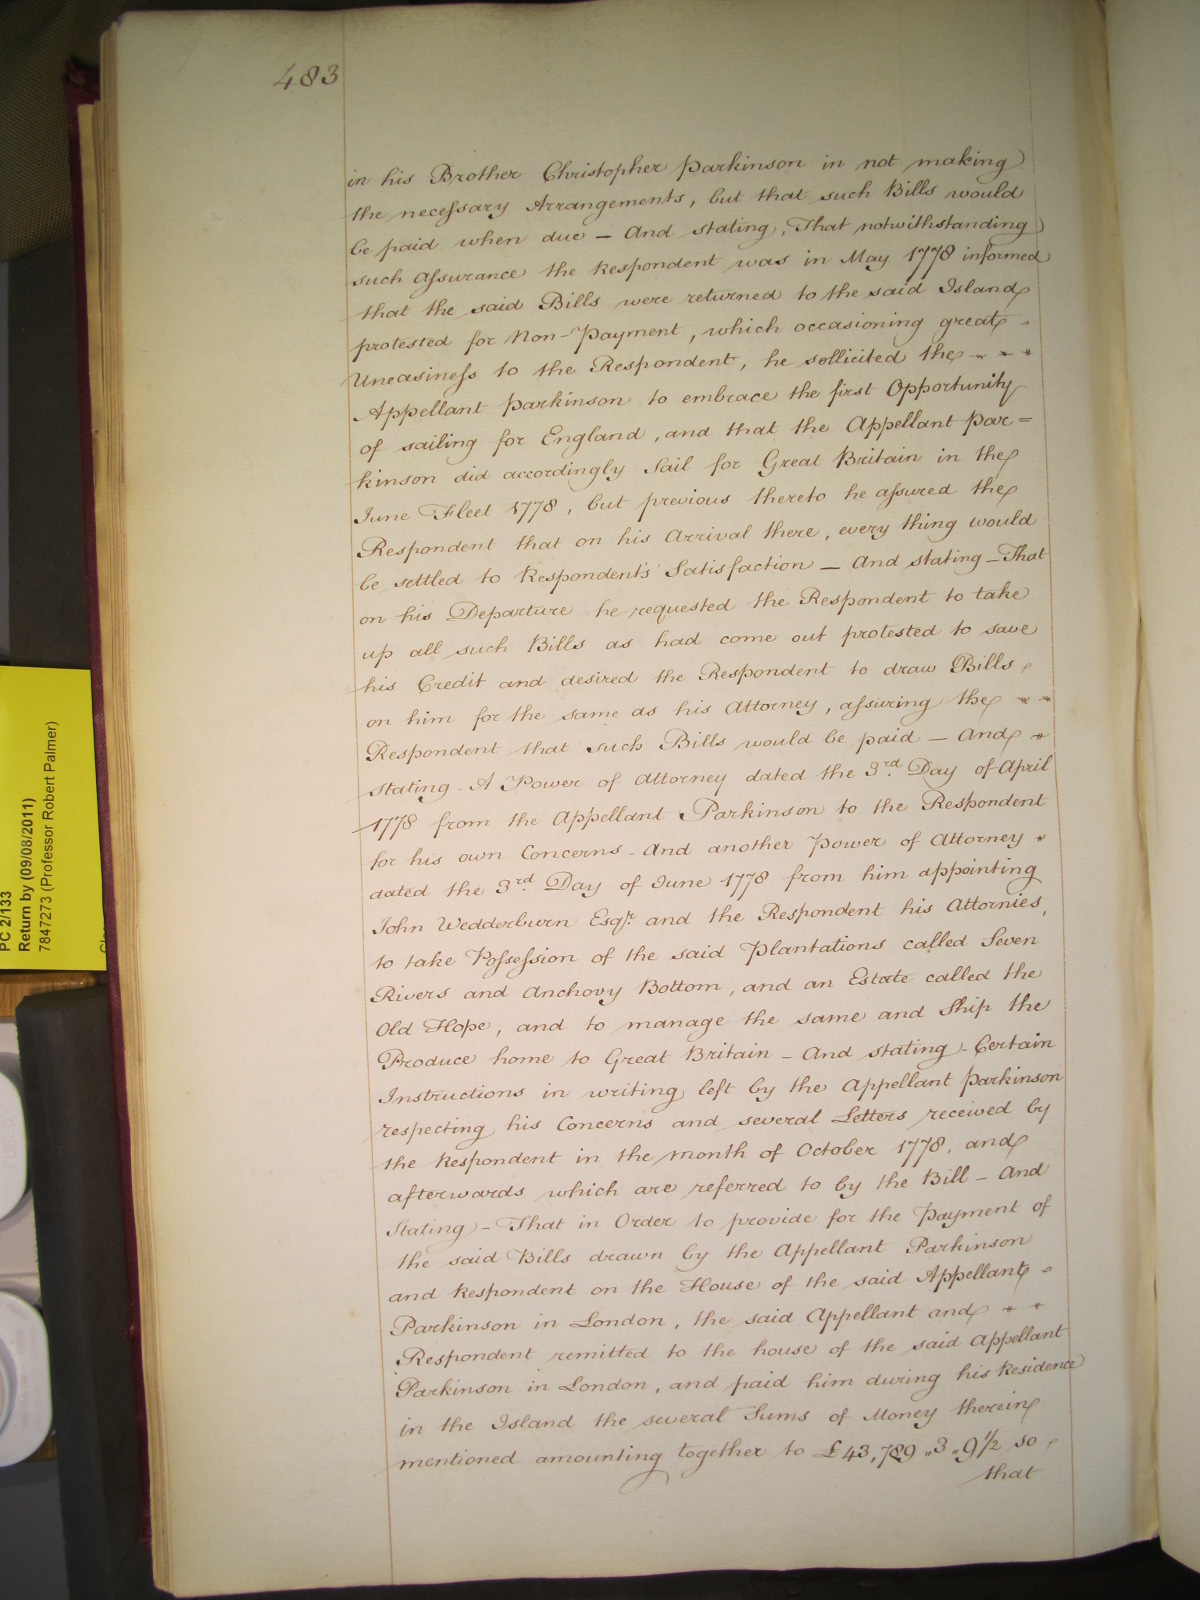 483
in his Brother Christopher Parkinson in not making
the necessary Arrangements, but that such Bills would
be paid when due — And stating, That notwithstanding
such Assurance the Respondent was in May 1778 informed
that the said Bills were returned to the said Island
protested for Non-Payment, which occasioning great
Uneasiness to the Respondent, he sollicited the
Appellant Parkinson to embrace the first Opportunity
of sailing for England, and that the Appellant Par=
kinson did accordingly Sail for Great Britain in the
June Fleet 1778, but previous thereto he assured the
Respondent that on his Arrival there, every thing would
be settled to Respondent's Satisfaction — And stating — That
on his Departure he requested the Respondent to take
up all such Bills as had come out protested to save
his Credit and desired the Respondent to draw Bills
on him for the same as his Attorney, assuring the
Respondent that such Bills would be paid — And
stating - A Power of Attorney dated the 3rd Day of April
1778 from the Appellant Parkinson to the Respondent
for his own Concerns - And another Power of Attorney
dated the 3rd Day of June 1778 from him appointing
John Wedderburn Esqr. and the Respondent his Attornies,
to take Possession of the said Plantations called Seven
Rivers and Anchovy Bottom, and an Estate called the
Old Hope, and to manage the same and Ship the
Produce home to Great Britain - And stating - Certain
Instructions in writing left by the Appellant Parkinson
respecting his Concerns and several Letters received by
the Respondent in the month of October 1778, and
afterwards which are referred to by the Bill - And
Stating - That in Order to provide for the Payment of
the said Bills drawn by the Appellant Parkinson
and Respondent on the House of the said Appellant
Parkinson in London, the said Appellant and
Respondent remitted to the house of the said Appellant
Parkinson in London, and paid him during his Residence
in the Island the several Sums of Money therein
mentioned amounting together to £43,789 „3 „9½ so
that
PC 2/133
Return by (09/08/2011)
7847273 (Professor Robert Palmer)